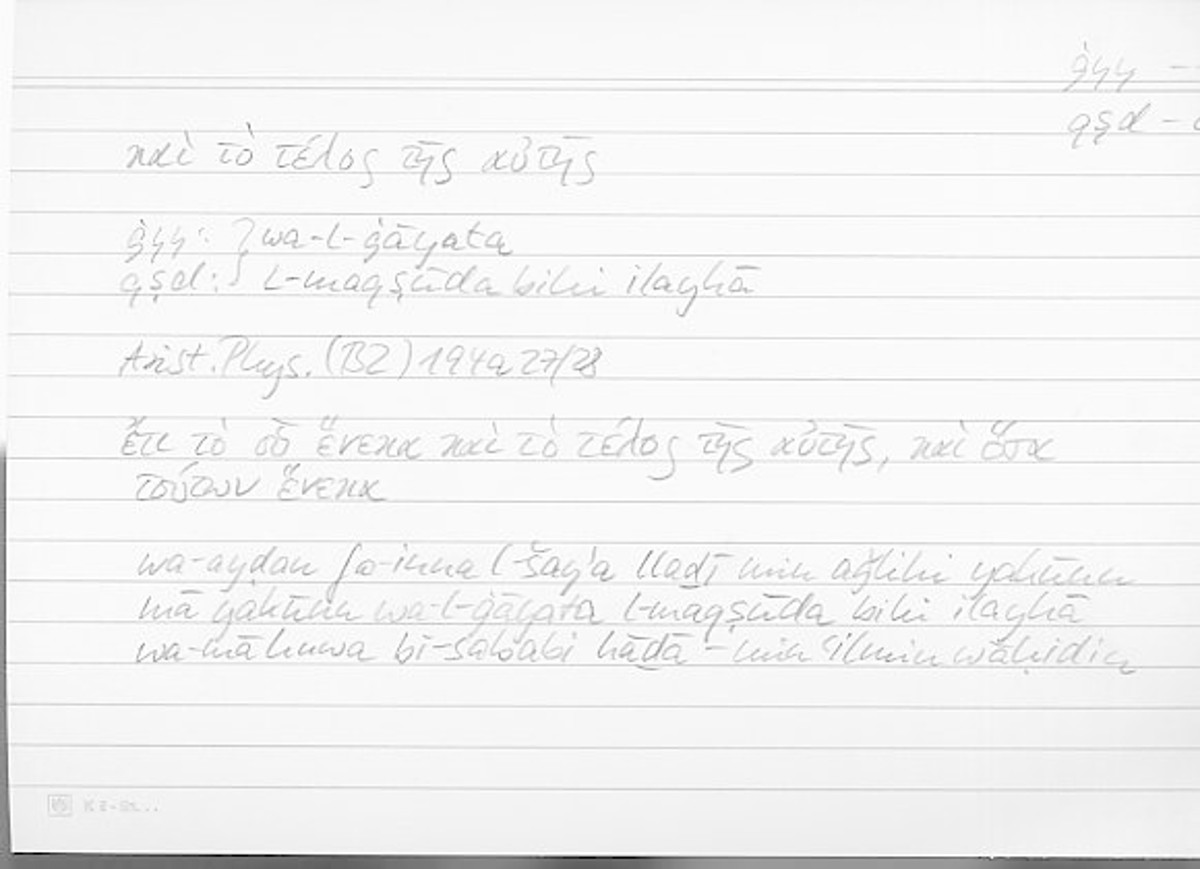 ġyy –
qṣd –
καὶ τὸ τέλος τῆς αὐτῆς
ġyy: } wa-l-ġāyata
qṣd: } l-maqṣūda bihi ilayhā
Arist. Phys. (B2) 194a27/28
ἔτι τὸ οὗ ἕνεκα καὶ τὸ τέλος τῆς αὐτῆς, καὶ ὅσα
τούτων ἕνεκα
wa-ayḍan fa-inna l-šayʾa llaḏī min aǧlihi yakūnu
mā yakūnu wa-l-ġāyata l-maqṣūda bihi ilayhā
wa-mā huwa bi-sababi hāḏā – min ʿilmin wāḥidin